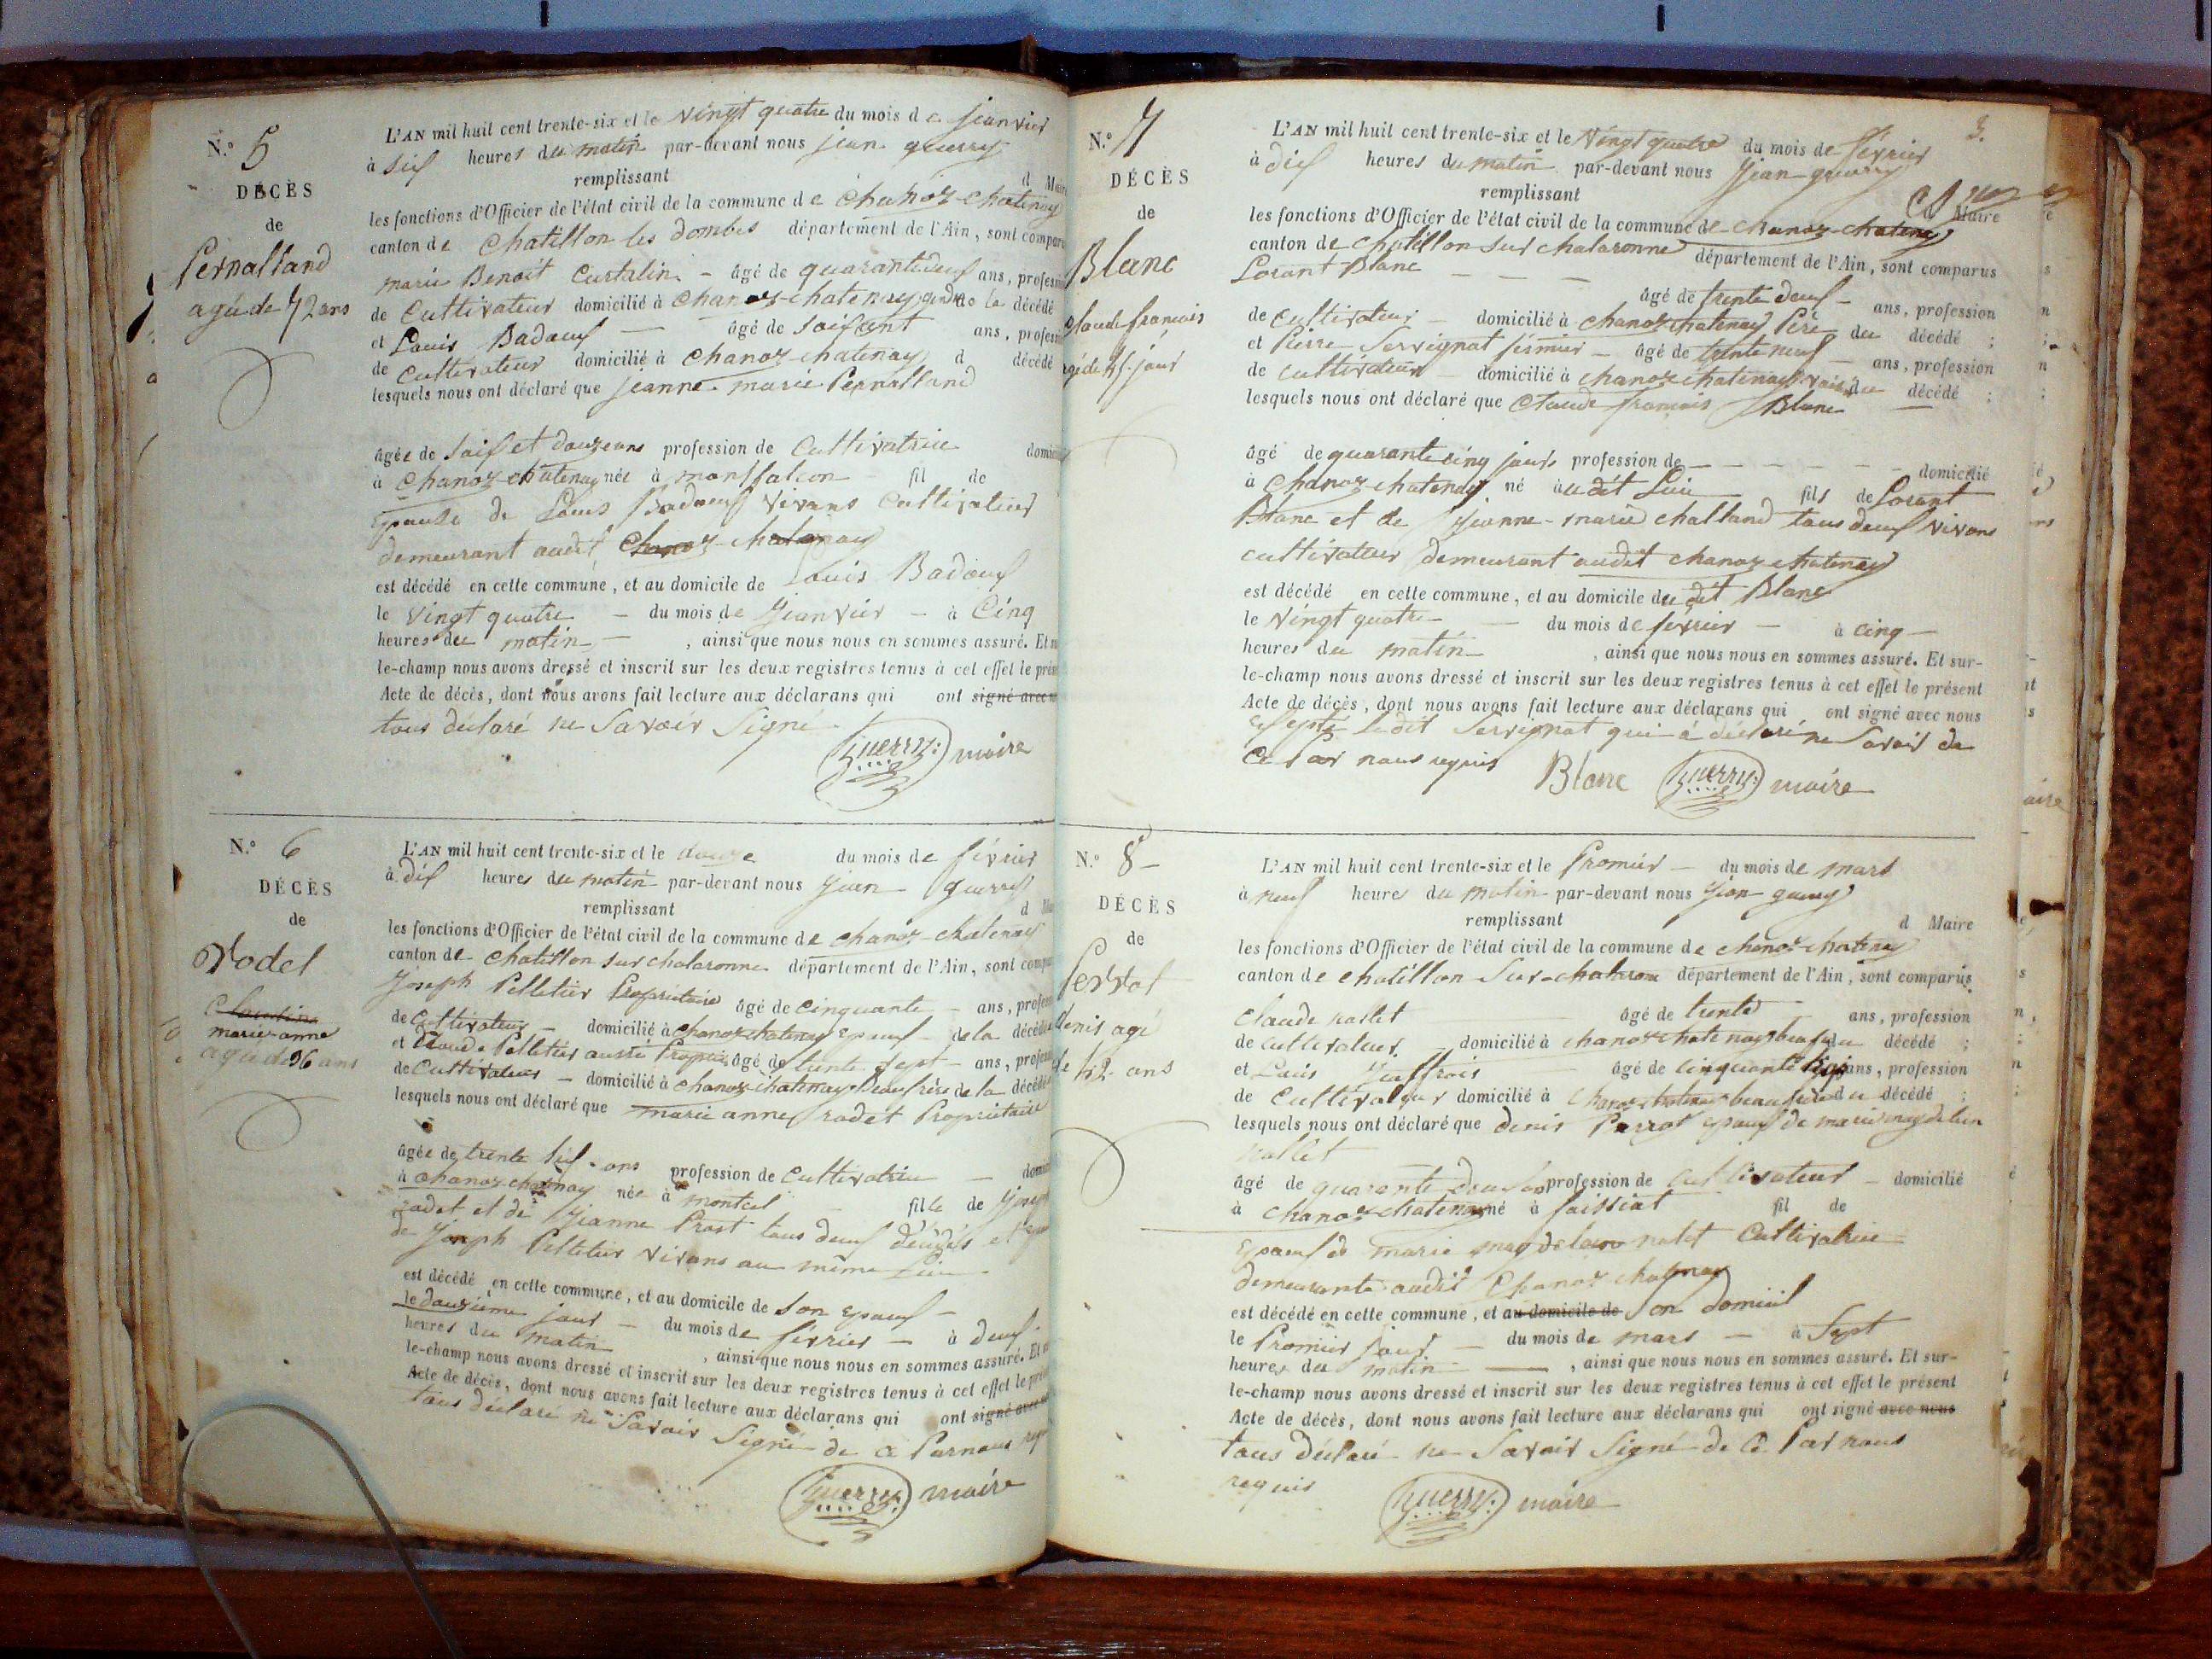 N.º 5
DÉCÈS
de
Pernalland
agée de 72 ans
L'AN mil huit cent trente-six et le vingt quatre du mois de janvier
à six heures du matin par-devant nous jean guerry
remplissant d Maire
les fonctions d'Officier de l'état civil de la commune de chanoz-chatenay
canton de Chatillon les dombes département de l'Ain, sont compar
marie Benoit Curtalin - âgé de quarante deux ans, profess
de Cultivateur domicilié à chanoz-chatenay gendre la décédé
et Louis Badoux - âgé de soixant ans, profess
de cultivateur domicilié à chanoz-chatenay d décédé
lesquels nous ont déclaré que jeanne marie Pernalland
âgée de soix et douze ans profession de Cultivatrice domi
à chanoz-chatenay née à montfalcon fil de
Epouse de Louis Badoux vivans Cultivateur
demeurant audit Chanoz-chatenay
est décédé en cette commune, et au domicile de Louis Badoux
le vingt quatre - du mois de janvier - à cinq
heures du matin - , ainsi que nous nous en sommes assuré. Et
le-champ nous avons dressé et inscrit sur les deux registres tenus à cet effet le prés
Acte de décès, dont nous avons fait lecture aux déclarans qui ont signé avec
tous déclaré ne savoir signé
Guerry: maire
N.º 6
DÉCÈS
de
Rodet
Claudine
marie-anne
agée de 36 ans
L'AN mil huit cent trente-six et le douze du mois de février
à dix heures du matin par-devant nous jean guerry
remplissant d
les fonctions d'Officier de l'état civil de la commune de chanoz-chatenay
canton de chatillon sur chalaronne département de l'Ain, sont comp
joseph Pelletier Propriétaire âgé de cinquante - ans, profess
de Cultivateur - domicilié à chanoz chatenay Epoux de la décédé
et Claude Pelletier aussi Propri âgé de trente sept - ans, profess
de Cultivateur - domicilié à chanoz-chatenay Beau frère de la décédé
lesquels nous ont déclaré que marie anne radet Propriétaire
âgée de trente six - ans profession de cultivatrice - domi
à chanoz-chatenay née à montcel fille de joseph
radet et de jeanne Prost tous deux décédés et
de joseph Pelletier vivans au même Lieu
est décédé en cette commune, et au domicile de son Epoux -
le douzième jour - du mois de février - à deux
heures du matin , ainsi que nous nous en sommes assuré. Et
le-champ nous avons dressé et inscrit sur les deux registres tenus à cet effet le pré
Acte de décès, dont nous avons fait lecture aux déclarans qui ont signé avec
tous déclaré ne savoir signé de ce Par nous
Guerry: maire
3.
N.º 7
DÉCÈS
de
Blanc
claude francois
agé de 45 jour
L'AN mil huit cent trente-six et le vingt quatre du mois de février
à dix heures du matin par-devant nous jean guerry
remplissant d Maire
les fonctions d'Officier de l'état civil de la commune de chanoz-chatenay
canton de chatillon sur chalaronne département de l'Ain, sont comparus
Lorant Blanc - - - âgé de trente deux - ans, profession
de cultivateur - domicilié à chanoz chatenay Père du décédé ;
et Pierre Servignat fermier - âgé de trente neuf - ans, profession
de cultivateur - domicilié à chanoz chatenay voisin du décédé ;
lesquels nous ont déclaré que Claude francois Blanc -
âgé de quarante cinq jours profession de - - - domicilié
à chanoz-chatenay né audit Lieu fils de Lorant
Blanc et de jeanne-marie challand tous deux vivans
cultivateur demeurant audit chanoz-chatenay
est décédé en cette commune, et au domicile du dit Blanc
le vingt quatre - du mois de fevrier - à cinq -
heures du matin - , ainsi que nous nous en sommes assuré. Et sur-
le-champ nous avons dressé et inscrit sur les deux registres tenus à cet effet le présent
Acte de décès, dont nous avons fait lecture aux déclarans qui ont signé avec nous
excepté ledit Servignat qui à déclaré ne savoir de
ce Par nous requis Blanc Guerry: maire
N.º 8 -
DÉCÈS
de
Perrot
denis agé
de 42 ans
L'AN mil huit cent trente-six et le Premier - du mois de mars
à neuf heures du matin par-devant nous jean guerry
remplissant d Maire
les fonctions d'Officier de l'état civil de la commune de chanoz-chatenay
canton de chatillon sur-chalarone département de l'Ain, sont comparus
claude nallet âgé de trente ans, profession
de cultivateur - domicilié à chanoz chatenay beauf du décédé ;
et Louis âgé de cinquante ans, profession
de Cultivateur domicilié à chanoz-chatenay beau frere du décédé ;
lesquels nous ont déclaré que denis Perrot epoux de marie magdelen
nallet
âgé de quarante deux ans profession de cultivateur - domicilié
à chanoz chatenay né à faissiat fil de
Epoux de marie magdelene nalet Cultivatrice
demeurante audit Chanoz chatenay
est décédé en cette commune, et au domicile de son domicil
le Premier jour - du mois de mars - à Sept
heures du matin - , ainsi que nous nous en sommes assuré. Et sur-
le-champ nous avons dressé et inscrit sur les deux registres tenus à cet effet le présent
Acte de décès, dont nous avons fait lecture aux déclarans qui ont signé avec nous
tous déclaré ne savoir signé de ce Par nous
requis Guerry: maire